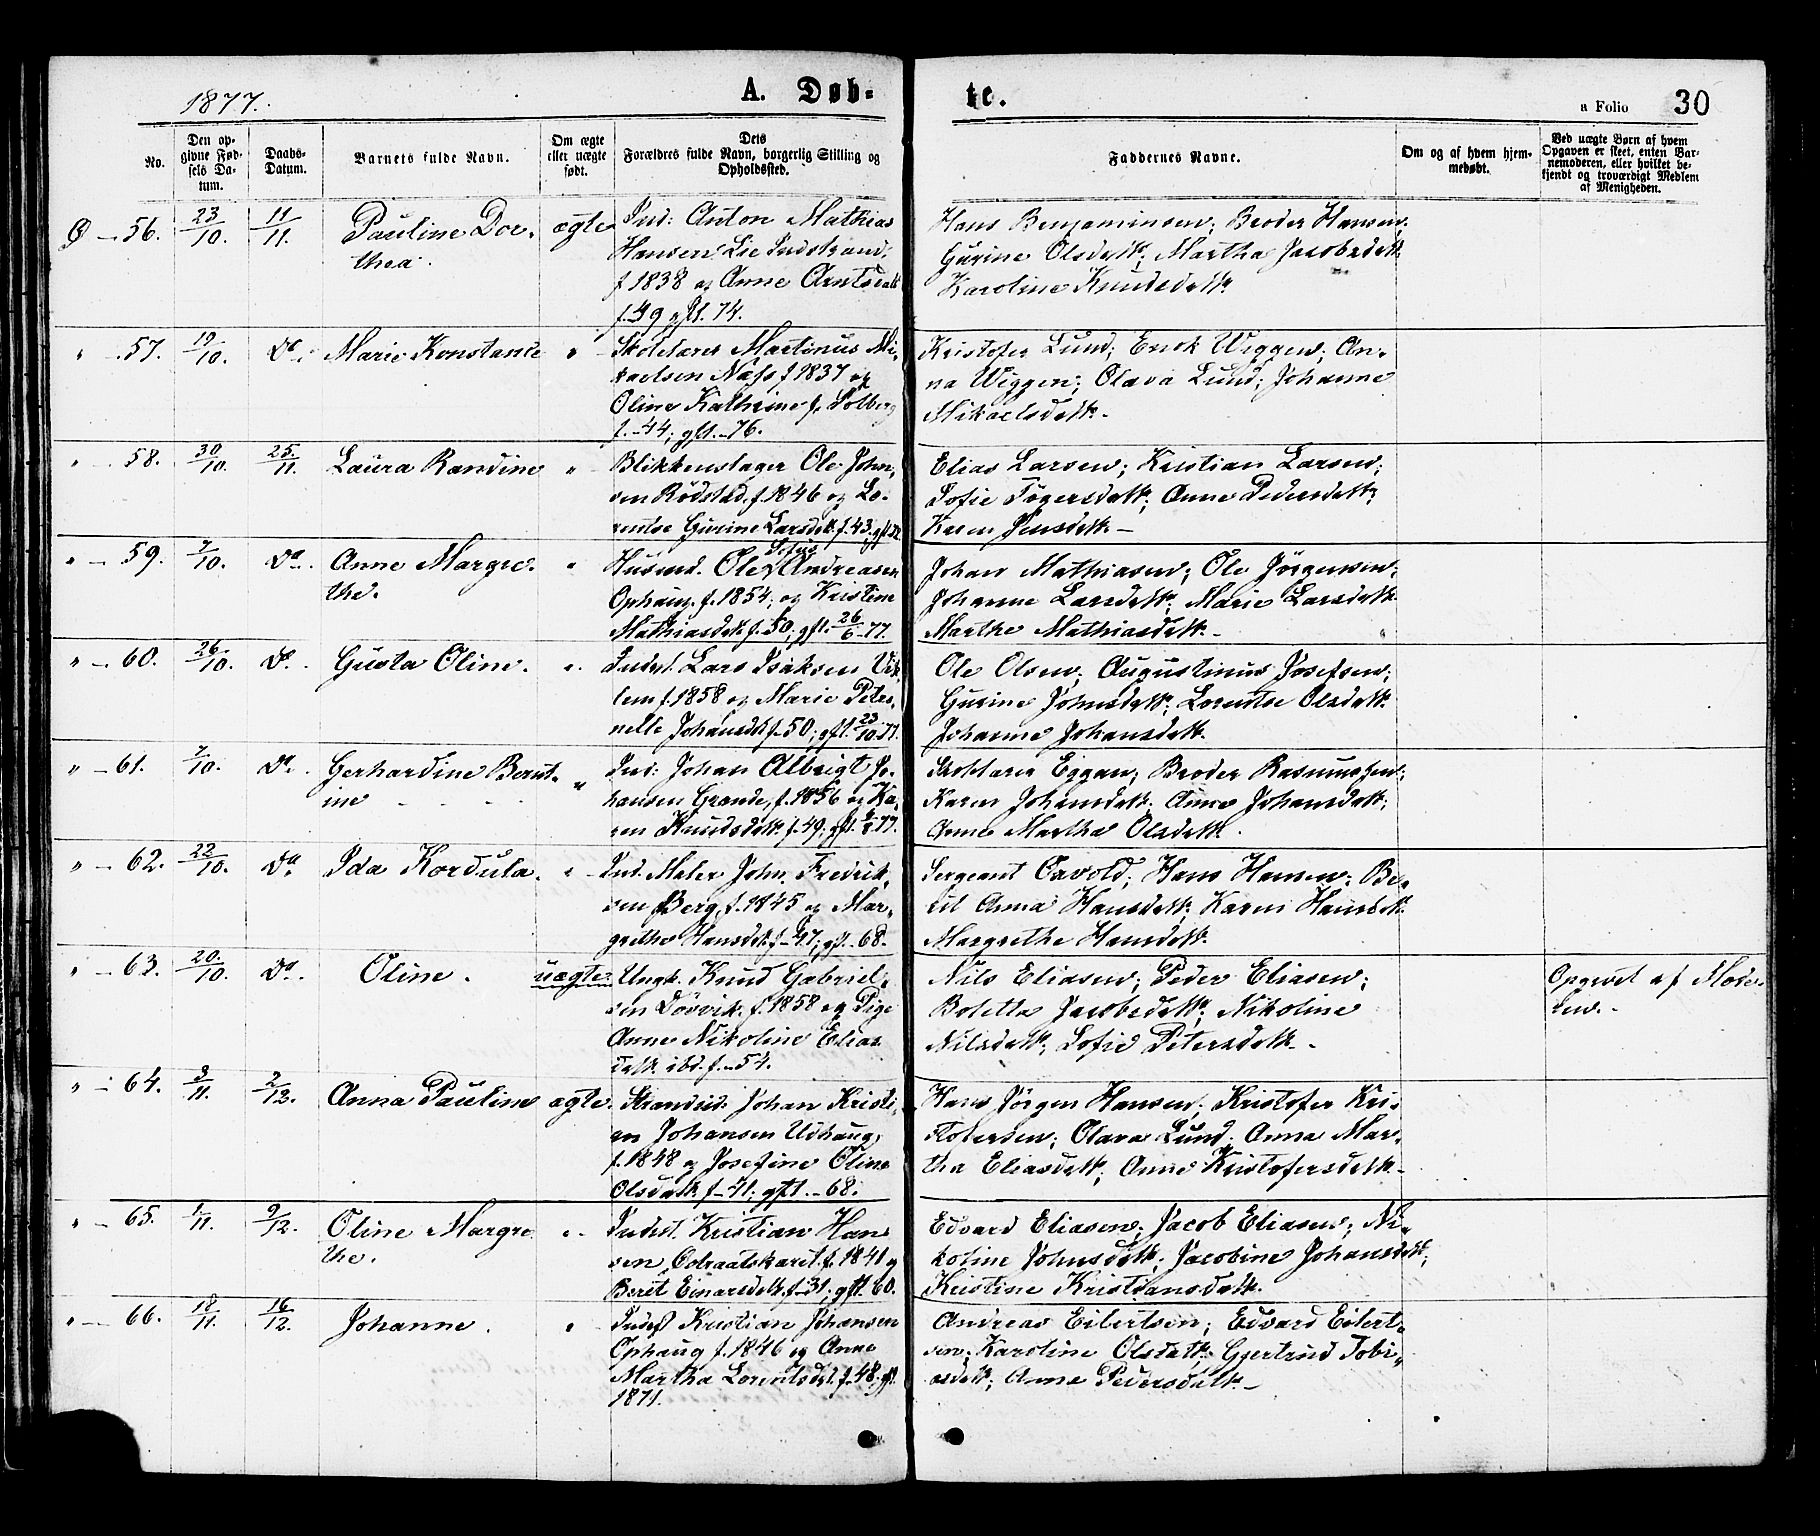 1877.
A. Døb-
te.
a Folio 30
No.
Den op-
givne Fød-
sels Da-
tum.
Daabs-
Datum.
Barnets fulde Navn.
Om ægte
eller uægte
født.
Dets
Forældres fulde Navn, borgerlig Stilling og
Opholdssted.
Faddernes Navne.
Om og af hvem hjem-
medøbt.
Ved uægte Børn af hvem
Opgaven er skeet, enten Bar-
nemoderen, eller hvilket be-
kjendt og troværdigt Medlem
af Menigheden.
Ø - 56. 23/10. 11/11. Pauline Dor-
thea.
ægte
Ind: Anton Mathias
Hansen Lie Indstrand,
f 1838 og Anne Arntsdatt
f. 39 gft. 74.
Hans Benjaminsen; Broder Hansen;
Gurine Olsdatt; Martha Jacobsdatt
Karoline Knudsdatt.
" - 57. 19/10. Do. Marie Konstanse "
Skolelærer Martinus Mi-
kaelsen Næss f 1837 og
Oline Kathrine f. Solberg
f. -44; gft. -76.
Kristofer Lund; Erik Wiggen; An-
na Wiggen; Olava Lund; Johanne
Mikaelsdatt. -
" - 58. 30/10. 25/11. Laura Randine "
Blikkenslager Ole John-
sen Rödstad, f. 1846 og Lo-
rentse Gurine Larsdt. f. 43. gft
Elias Larsen; Kristian Larsen;
Sofie Tögersdatt; Anne Pedersdatt;
Karen Jensdatt. -
" - 59. 7/10. Do. Anne Margre-
the.
"
Husmd. Ole Sefus Andreasen
Ophaug. f. 1854; og Kristine
Mathiasdatt f. 50; gft. 26/6 -77.
Johan Mathiasen; Ole Jörgensen;
Johanne Larsdatt; Marie Larsdatt
Marthe Mathiasdatt. -
" - 60. 26/10. Do. Gusta Oline. "
Indst. Lars Isaksen Vik-
lem f. 1858 og Marie Peter-
nelle Johansdt f. 50; gft. 23/10 77.
Ole Olsen; Augustinus Josefsen;
Gurine Johnsdatt; Lorentse Olsdatt
Johanne Johansdatt.
" - 61. 7/10. Do. Gerhardine Bernt-
ine
"
Ind: Johan Albrigt Jo-
hansen Grande, f. 1856 og Ka-
ren Knudsdatt f. 49; gft. 77.
Skollærer Eggan; Broder Rasmussen;
Karen Johansdatt; Anne Johansdatt;
Anne Martha Olsdatt.
" - 62. 22/10. Do. Ida Kordula. "
Ind. Maler John Fredrik-
sen Berg, f. 1845 og Mar-
grethe Hansdt f. -47; gft. -68.
Sergeant Oxvold; Hans Hansen; Be-
rit Anna Hansdatt; Karen Hansdatt
Margrethe Hansdatt.
" - 63. 20/10. Do. Oline. uægte
Ungk. Knud Gabriel-
sen Dösvik. f. 1858 og Pige
Anne Nikoline Elias
datt. ibd. f. -54.
Nils Eliasen; Peder Eliasen;
Boletta Jacobsdatt; Nikoline
Nilsdatt; Sofie Petersdatt. -
Opgivet af Mode-
ren. -
" - 64. 3/11. 2/12. Anna Pauline ægte.
Strandsid. Johan Kristi-
an Johansen Udhaug,
f. 1848 og Josefine Oline
Olsdatt f. -41; gft. -68.
Hans Jörgen Hansen; Kristofer Kri-
stofersen; Olava Lund; Anna Mar-
tha Eliasdatt; Anne Kristofersdatt -
" - 65. 1/11. 9/12. Oline Margre
the.
"
Indst. Kristian Han
sen, Osraatskaret f. 1841 og
Berit Einarsdatt f. -31; gft. 60.
Edvard Eliasen; Jacob Eliasen; Ni-
koline Johnsdatt; Jacobine Johansdatt;
Kristine Kristiansdatt.
" - 66. 18/11. 16/12. Johanne. "
Indst Kristian Johansen
Ophaug f. 1846 og Anne
Martha Lorentsdt. f. -48; gft.
1871.
Andreas Eilertsen; Edvard Eilert-
sen; Karoline Olsdatt; Gjertrud Tobi-
asdatt; Anne Pedersdatt -